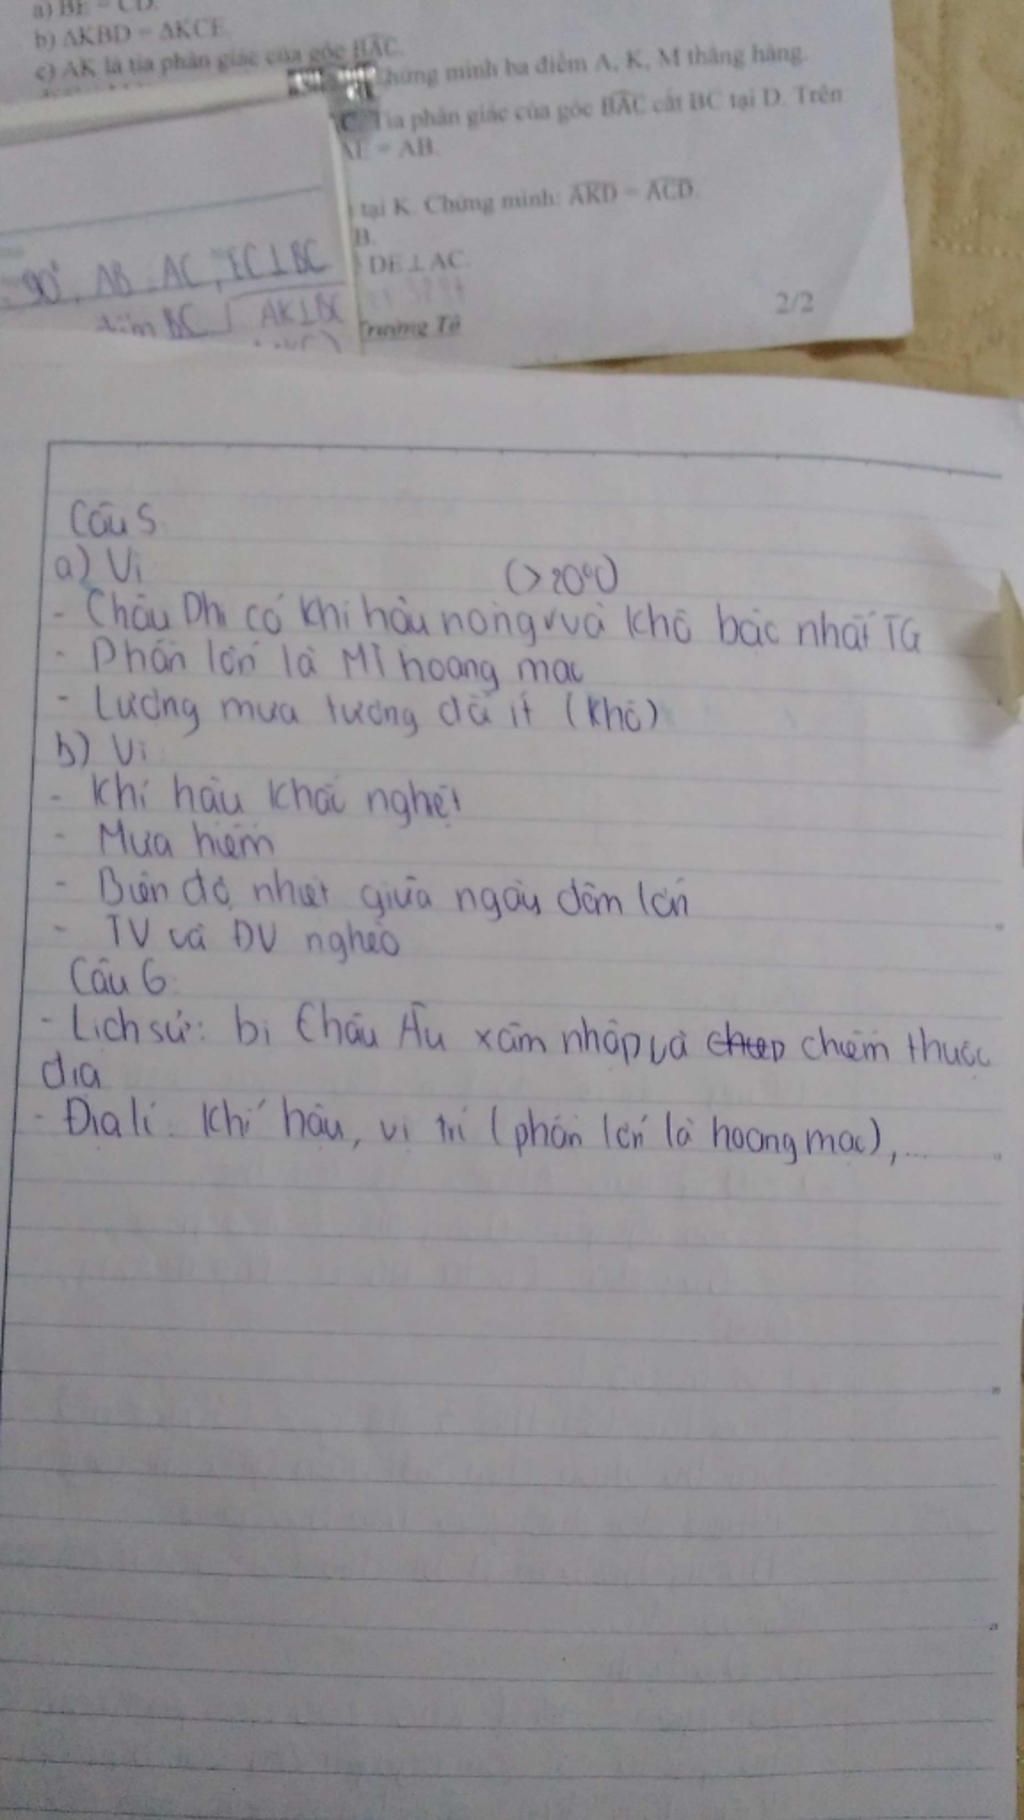 a) BE = CD.
b) ΔKBD = ΔKCE.
c) AK là tia phân giác của góc BAC.
Chứng minh ba điểm A, K, M thẳng hàng.
Tia phân giác của góc BAC cắt BC tại D. Trên
AE = AB.
tại K. Chứng minh: AKD = ACD.
B.
DE ⊥ AC.
Trường Tộ
2/2
90°, AB = AC, EC ⊥ BC
BC AK ⊥ BC
Câu 5
a) Vì
(>20°C)
- Châu Phi có khí hậu nóng và khô bậc nhất TG
- Phần lớn là MT hoang mạc
- Lượng mưa tương đối ít (khô)
b) Vì
- Khí hậu khắc nghiệt
- Mưa hiếm
- Biên độ nhiệt giữa ngày đêm lớn
- TV và ĐV nghèo
Câu 6:
- Lịch sử: bị Châu Âu xâm nhập và chiếm thuộc
địa
- Địa lí: Khí hậu, vị trí (phần lớn là hoang mạc),...